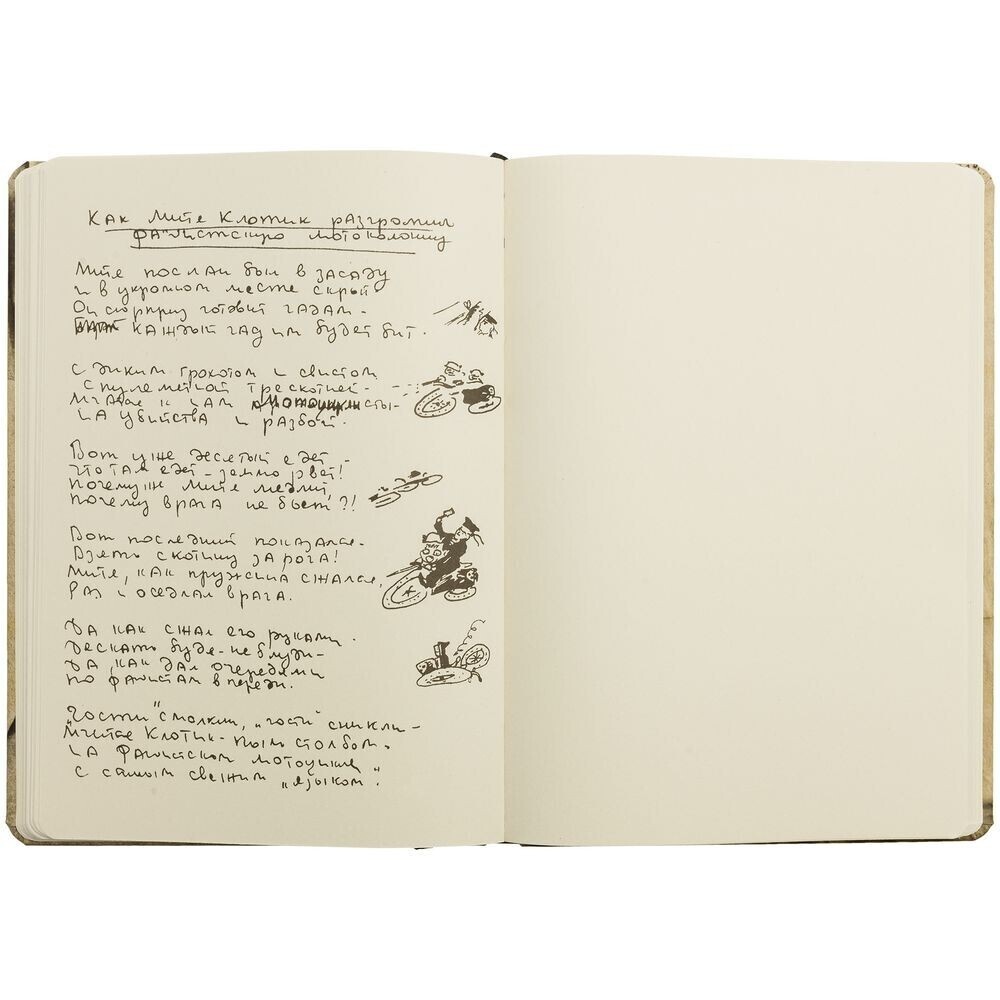 Как Митя Клотик разгромил
фашистскую мотоколонну
Митя послан был в засаду
и в укромном месте скрыт
Он сюрприз готовит гадам -
каждый гад им будет бит.
С диким грохотом и свистом
С пулеметной трескотней -
Мчатся к нам мотоциклисты -
на убийства и разбой.
Вот уже желтый едет -
что там едет - землю рвет!
Почему ж Митя медлит,
почему врага не бьет?!
Вот последний показался -
Взять скотину за рога!
Митя, как пружина сжался,
Раз и оседлал врага.
Да как сжал его руками -
Дескать будь - не блуди -
Да как дал очередями
по фашистам впереди.
"Гости" смолкли, "гости" сникли -
Мчится Клотик - пыль столбом.
на фашистском мотоцикле
с самым свежим "языком".